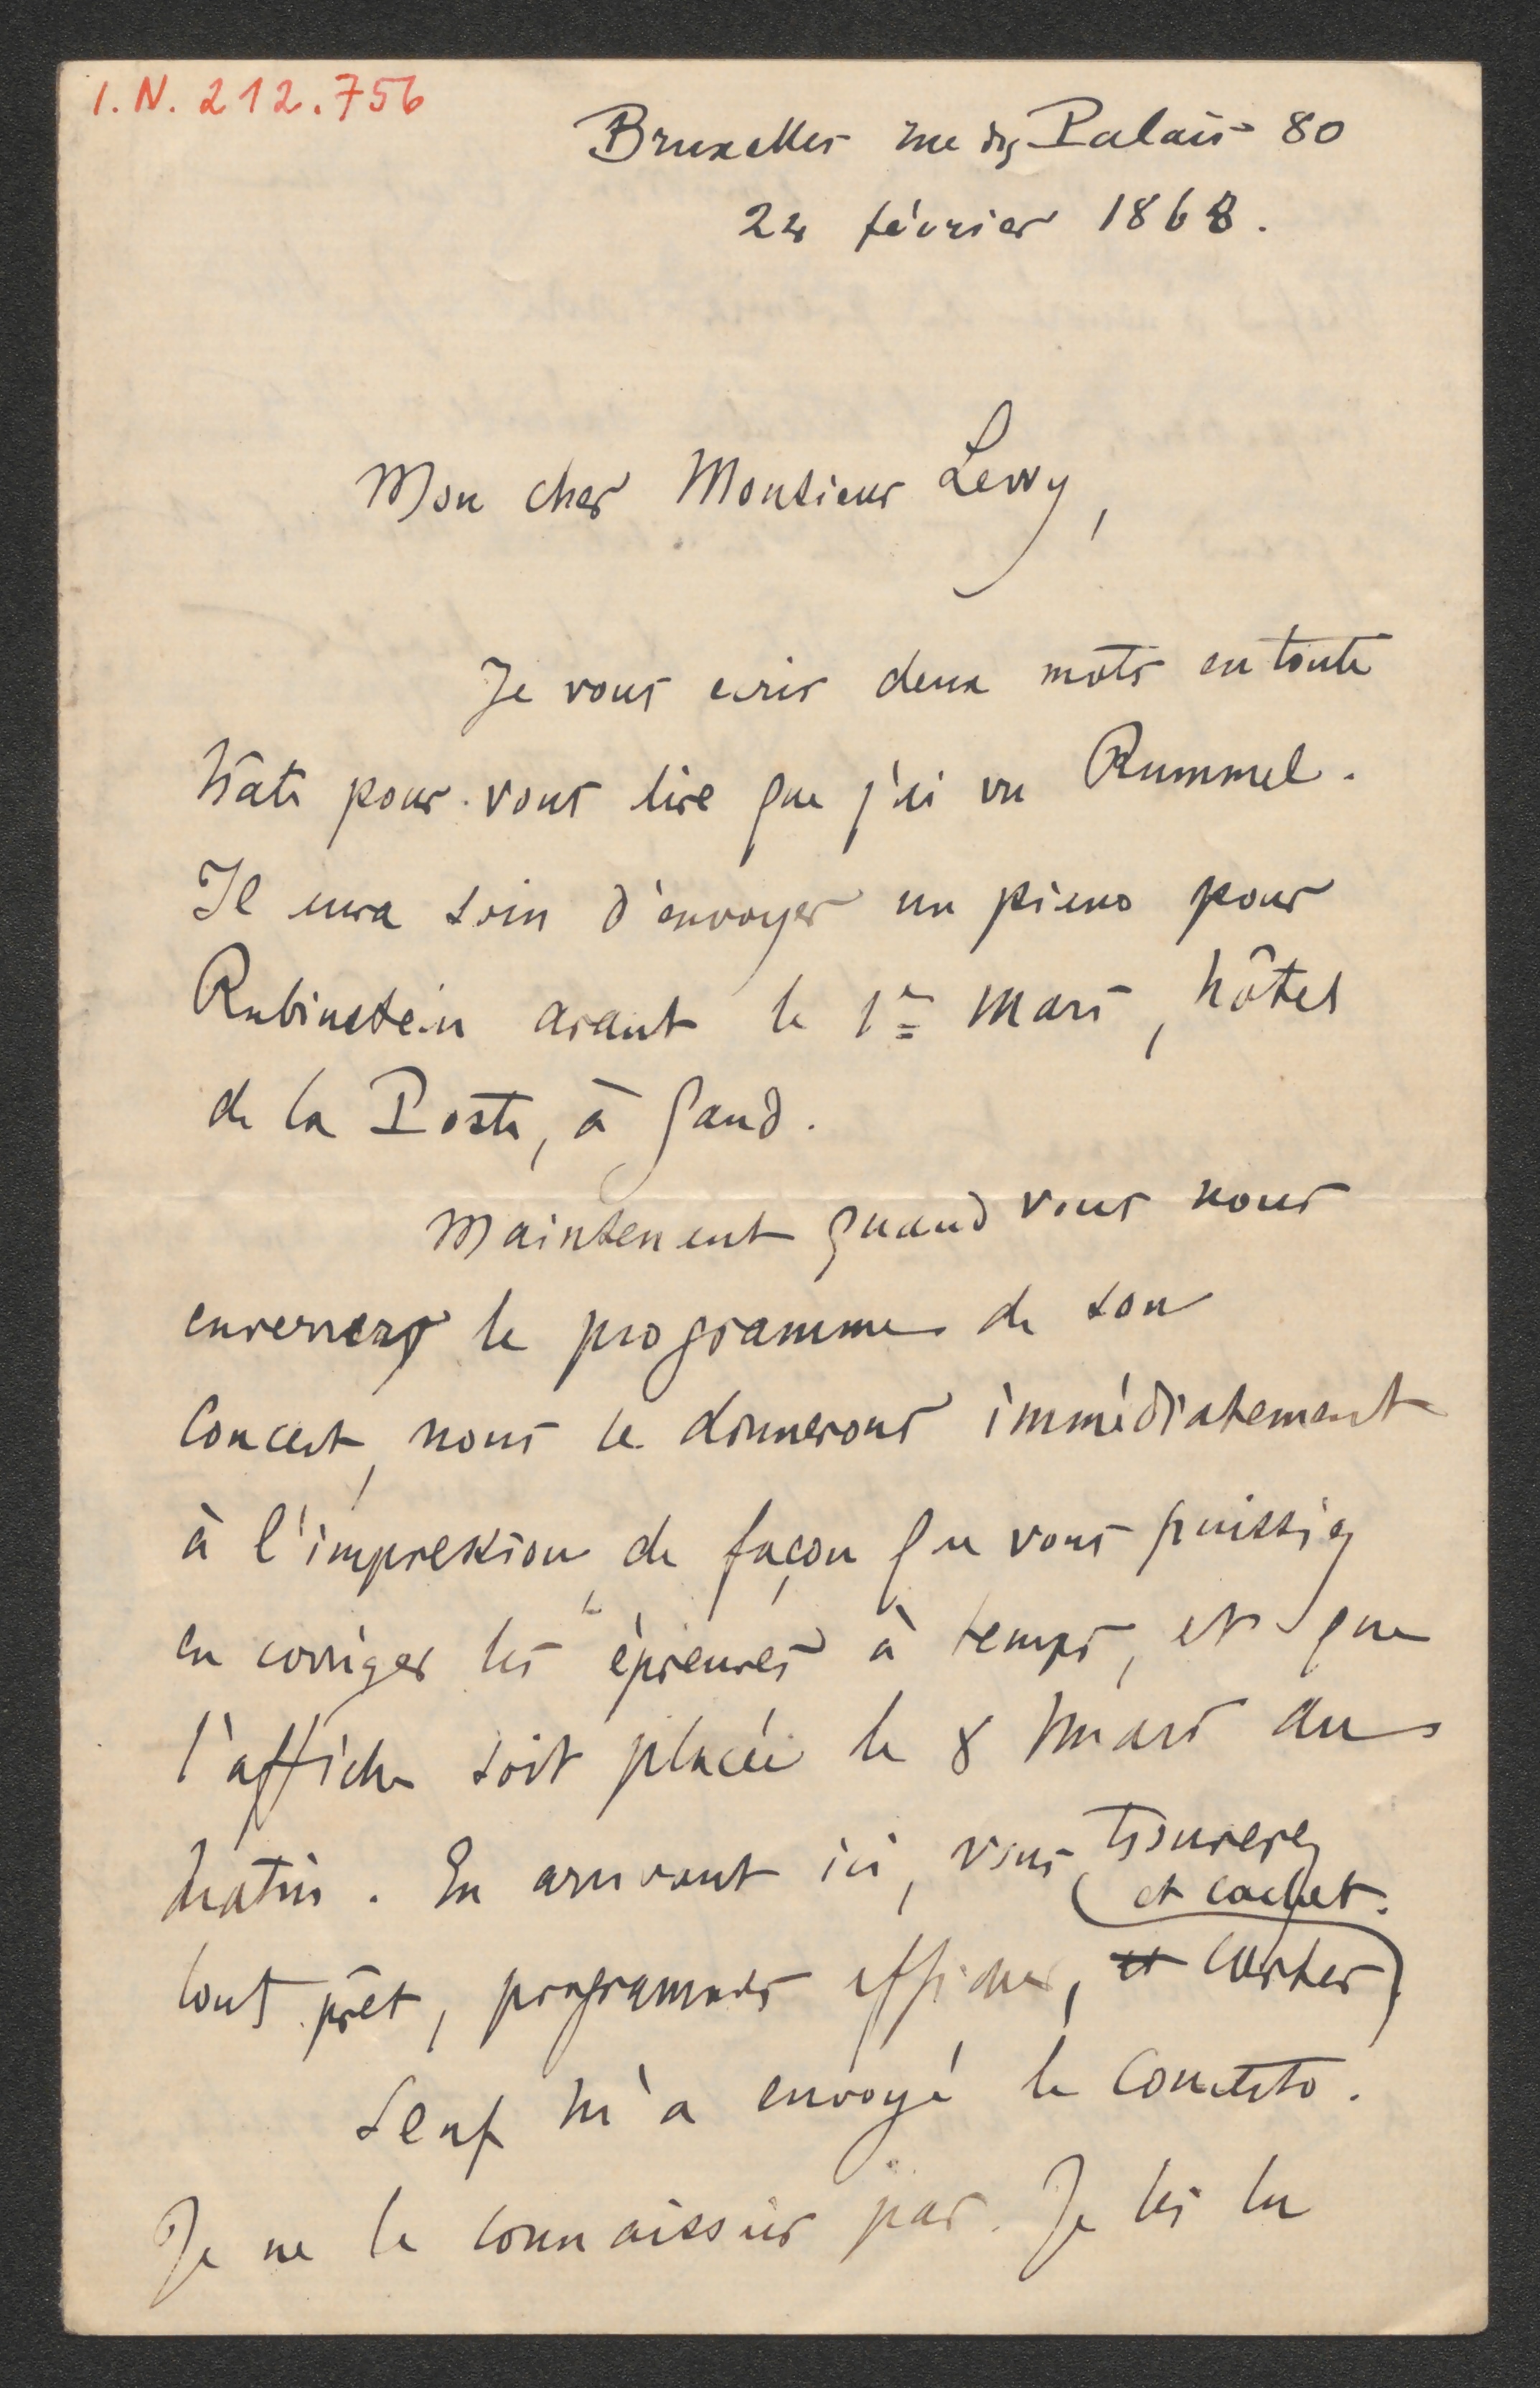 I.N. 212.756
Bruxelles rue des Palais 80
24 février 1868.
Mon cher Monsieur Lewy,
Je vous ecris deux mots en toute
hâte pour vous dire que j'ai vu Rummel.
Il aura soin d'envoyer un piano pour
Rubinstein avant le 1er Mars, hôtel
de la Poste, à Gand.
Maintenant quand vous nous
enverrez le programme de son
Concert, nous le donnerons immédiatement
à l'impression, de façon que vous puissiez
en corriger les épreuves à temps, et que
l'affiche soit placée le 8 Mars au
Matin. En arrivant ici, vous trouverez
tout prêt, programmes affiches, et cartes
et cachet.
Senf m'a envoyé le Concerto.
Je ne le connaissais pas. Je l'ai lu